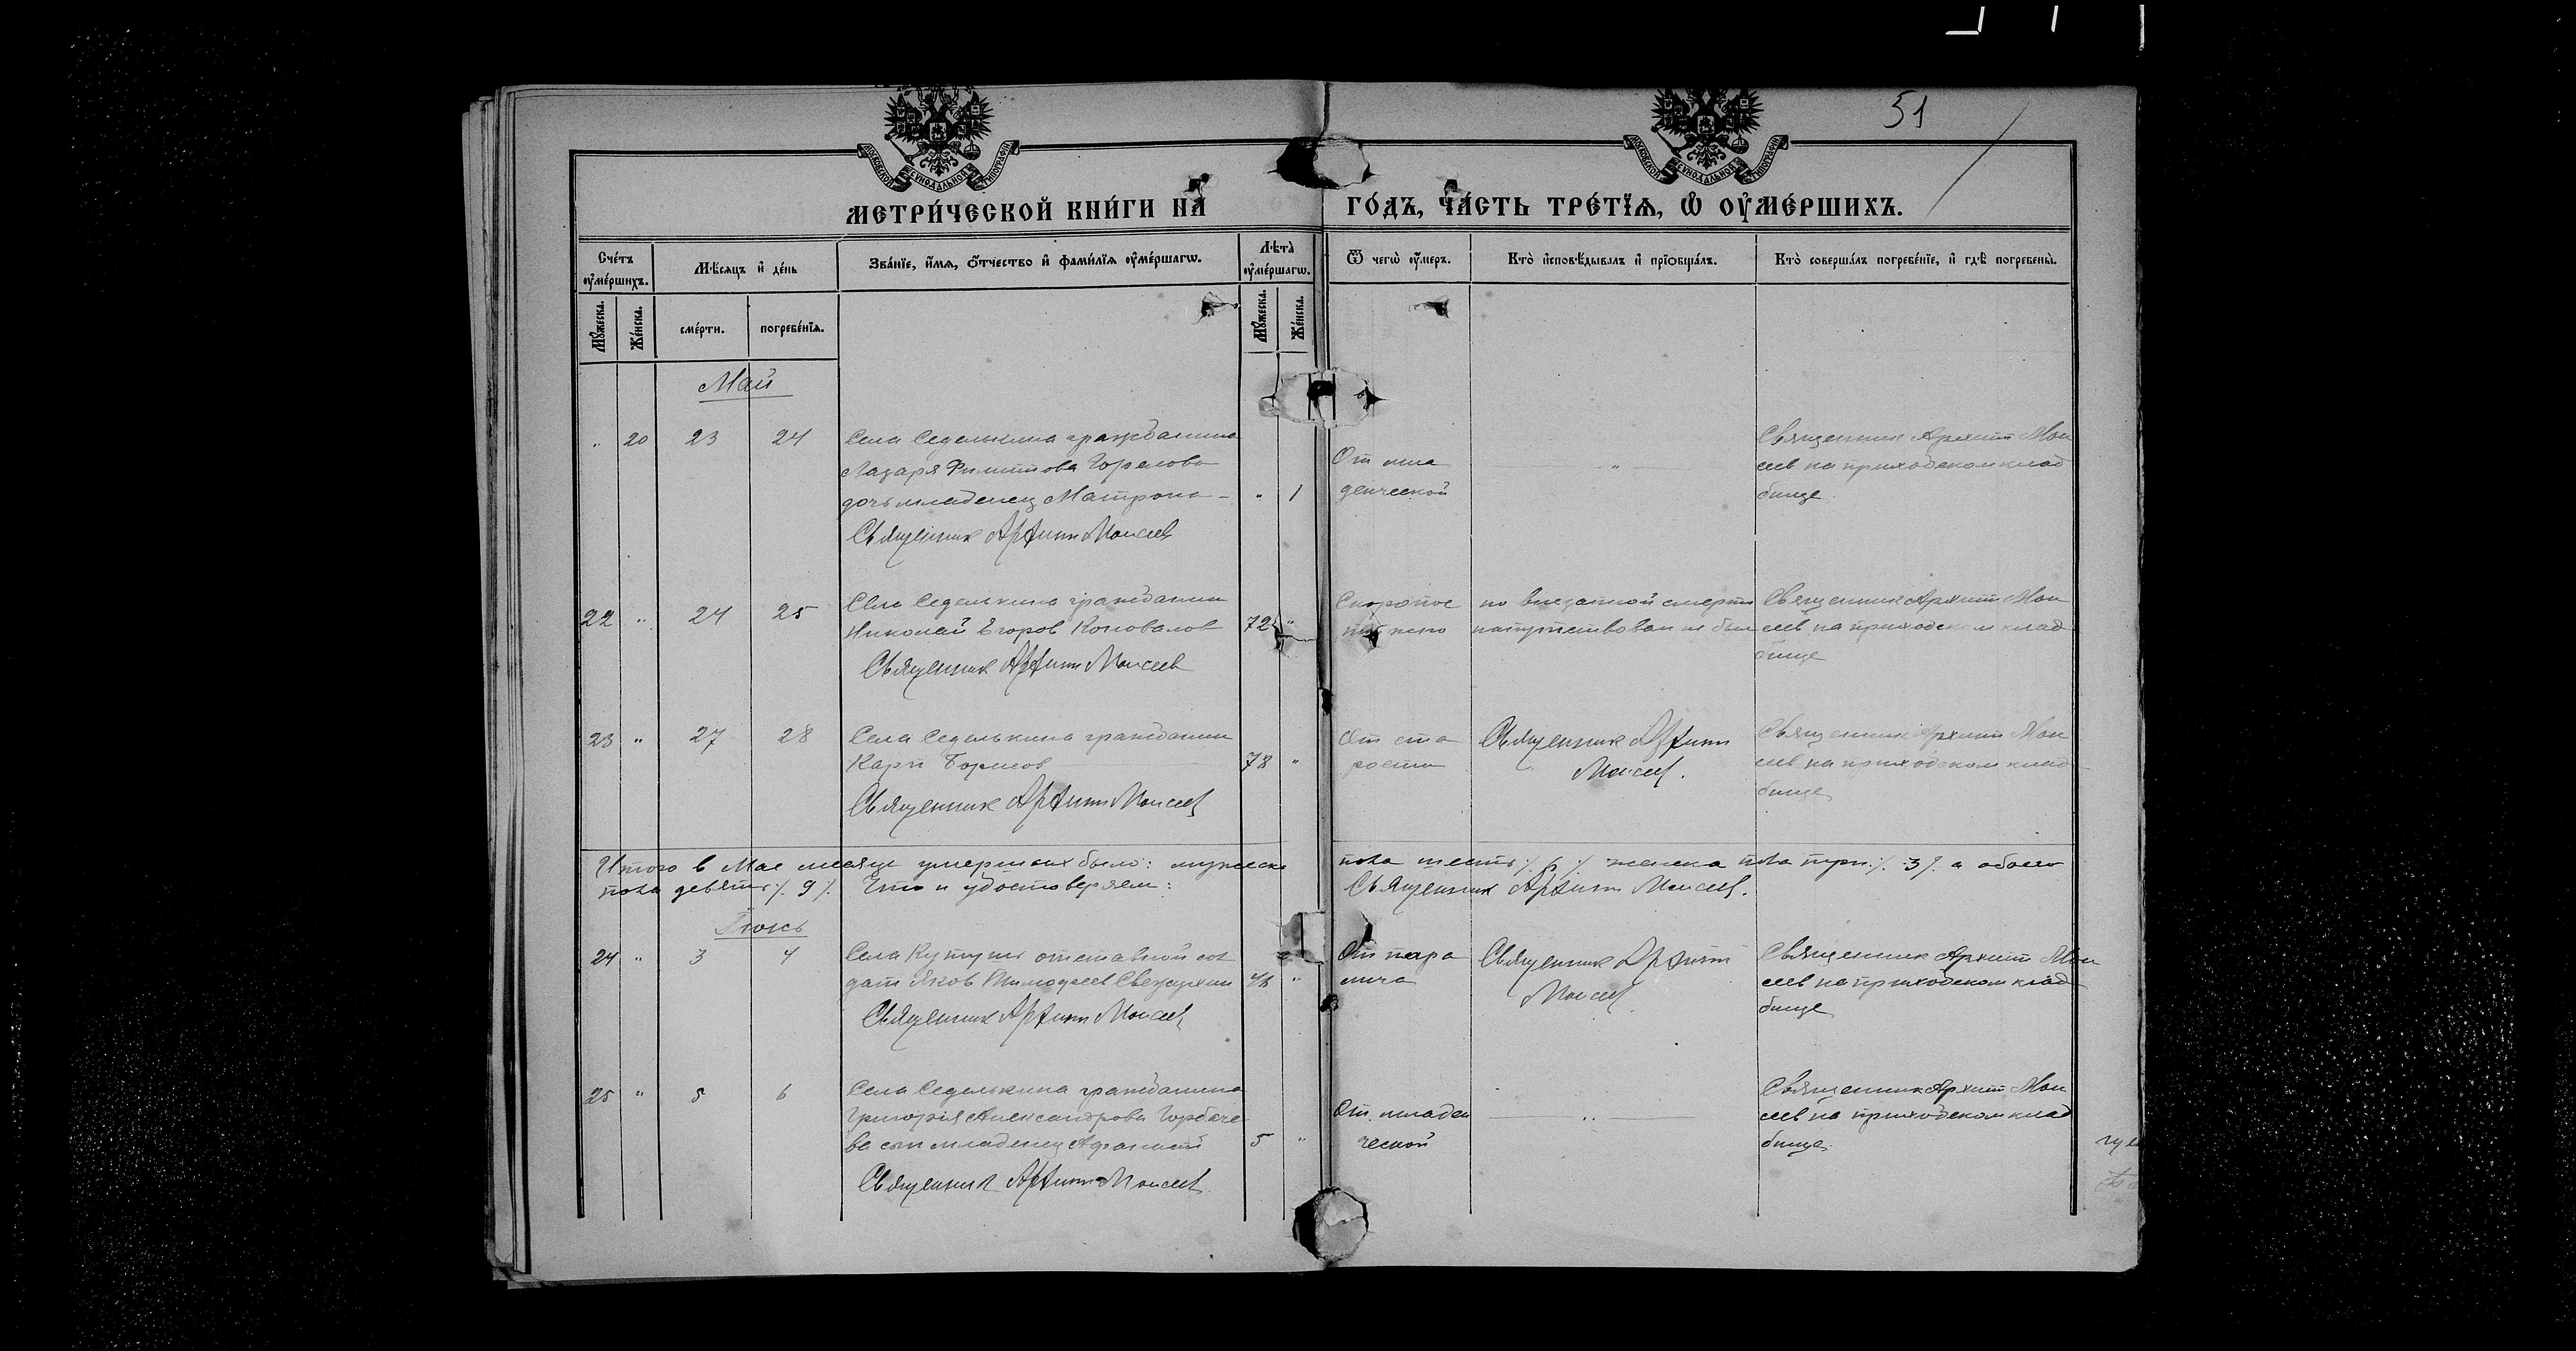 51
МОСКОВСКОЙ СѴНОДАЛЬНОЙ ТИПОГРАФІИ
МОСКОВСКОЙ СѴНОДАЛЬНОЙ ТИПОГРАФІИ
МЕТРИ́ЧЕСКОЙ КНИ́ГИ НА̀ ГО́ДЪ, ЧА́СТЬ ТРЕ́ТЇѦ, Ѡ҆ ОУ҆МЕ́РШИХЪ.
Сче́тъ оу҆ме́ршихъ.
Мѣ́сяцъ и҆ де́нь
Зва́нїе, и҆́мѧ, ѻ҆́тчество и҆ фами́лїѧ оу҆ме́ршагѡ.
Лѣ́та оу҆ме́ршагѡ.
Ѿ чегѡ̀ оу҆́меръ.
Кто̀ и҆сповѣ́дывалъ и҆ прїѻбща́лъ.
Кто̀ соверша́лъ погребе́нїе, и҆ гдѣ̀ погребены̀.
Мꙋ́жеска. Же́нска. сме́рти. погребе́нїѧ. Мꙋ́жеска. Же́нска.
Май
" 20 23 24 Села Седелькина гражданина
Лазаря Филиппова Горелова
дочь младенец Матрона - " 1
Священник Архипп Моисеев
От мла
денческой
"
Священник Архипп Мои
сеев на приходском клад
бище.
22 " 24 25 Села Седелькина гражданин
Николай Егоров Коновалов 72 "
Священник Архипп Моисеев
Скоропос
тижно
по внезапной смерти
напутствован не был
Священник Архипп Мои
сеев на приходском клад
бище
23 " 27 28 Села Седелькина гражданин
Карп Борисов 78 "
Священник Архипп Моисеев
От ста
рости
Священник Архипп
Моисеев.
Священник Архипп Мои
сеев на приходском клад
бище
Итого в Мае месяце умерших было: мужеска пола шесть ./. 6 ./. женска пола три ./. 3 ./. а обоего
пола девять ./. 9 ./. Что и удостоверяем: Священник Архипп Моисеев.
Іюнь
24 " 3 4 Села Кутуш отставной сол
дат Яков Тимофеев "
Священник Архипп Моисеев
От пара
лича
Священник Архипп
Моисеев
Священник Архипп Мои
сеев на приходском клад
бище
25 " 5 6 Села Седелькина гражданина
Григорія Александрова Горбаче
ва сын младенец Афанасий 5 "
Священник Архипп Моисеев
От младен
ческой
"
Священник Архипп Мои
сеев на приходском клад
бище.